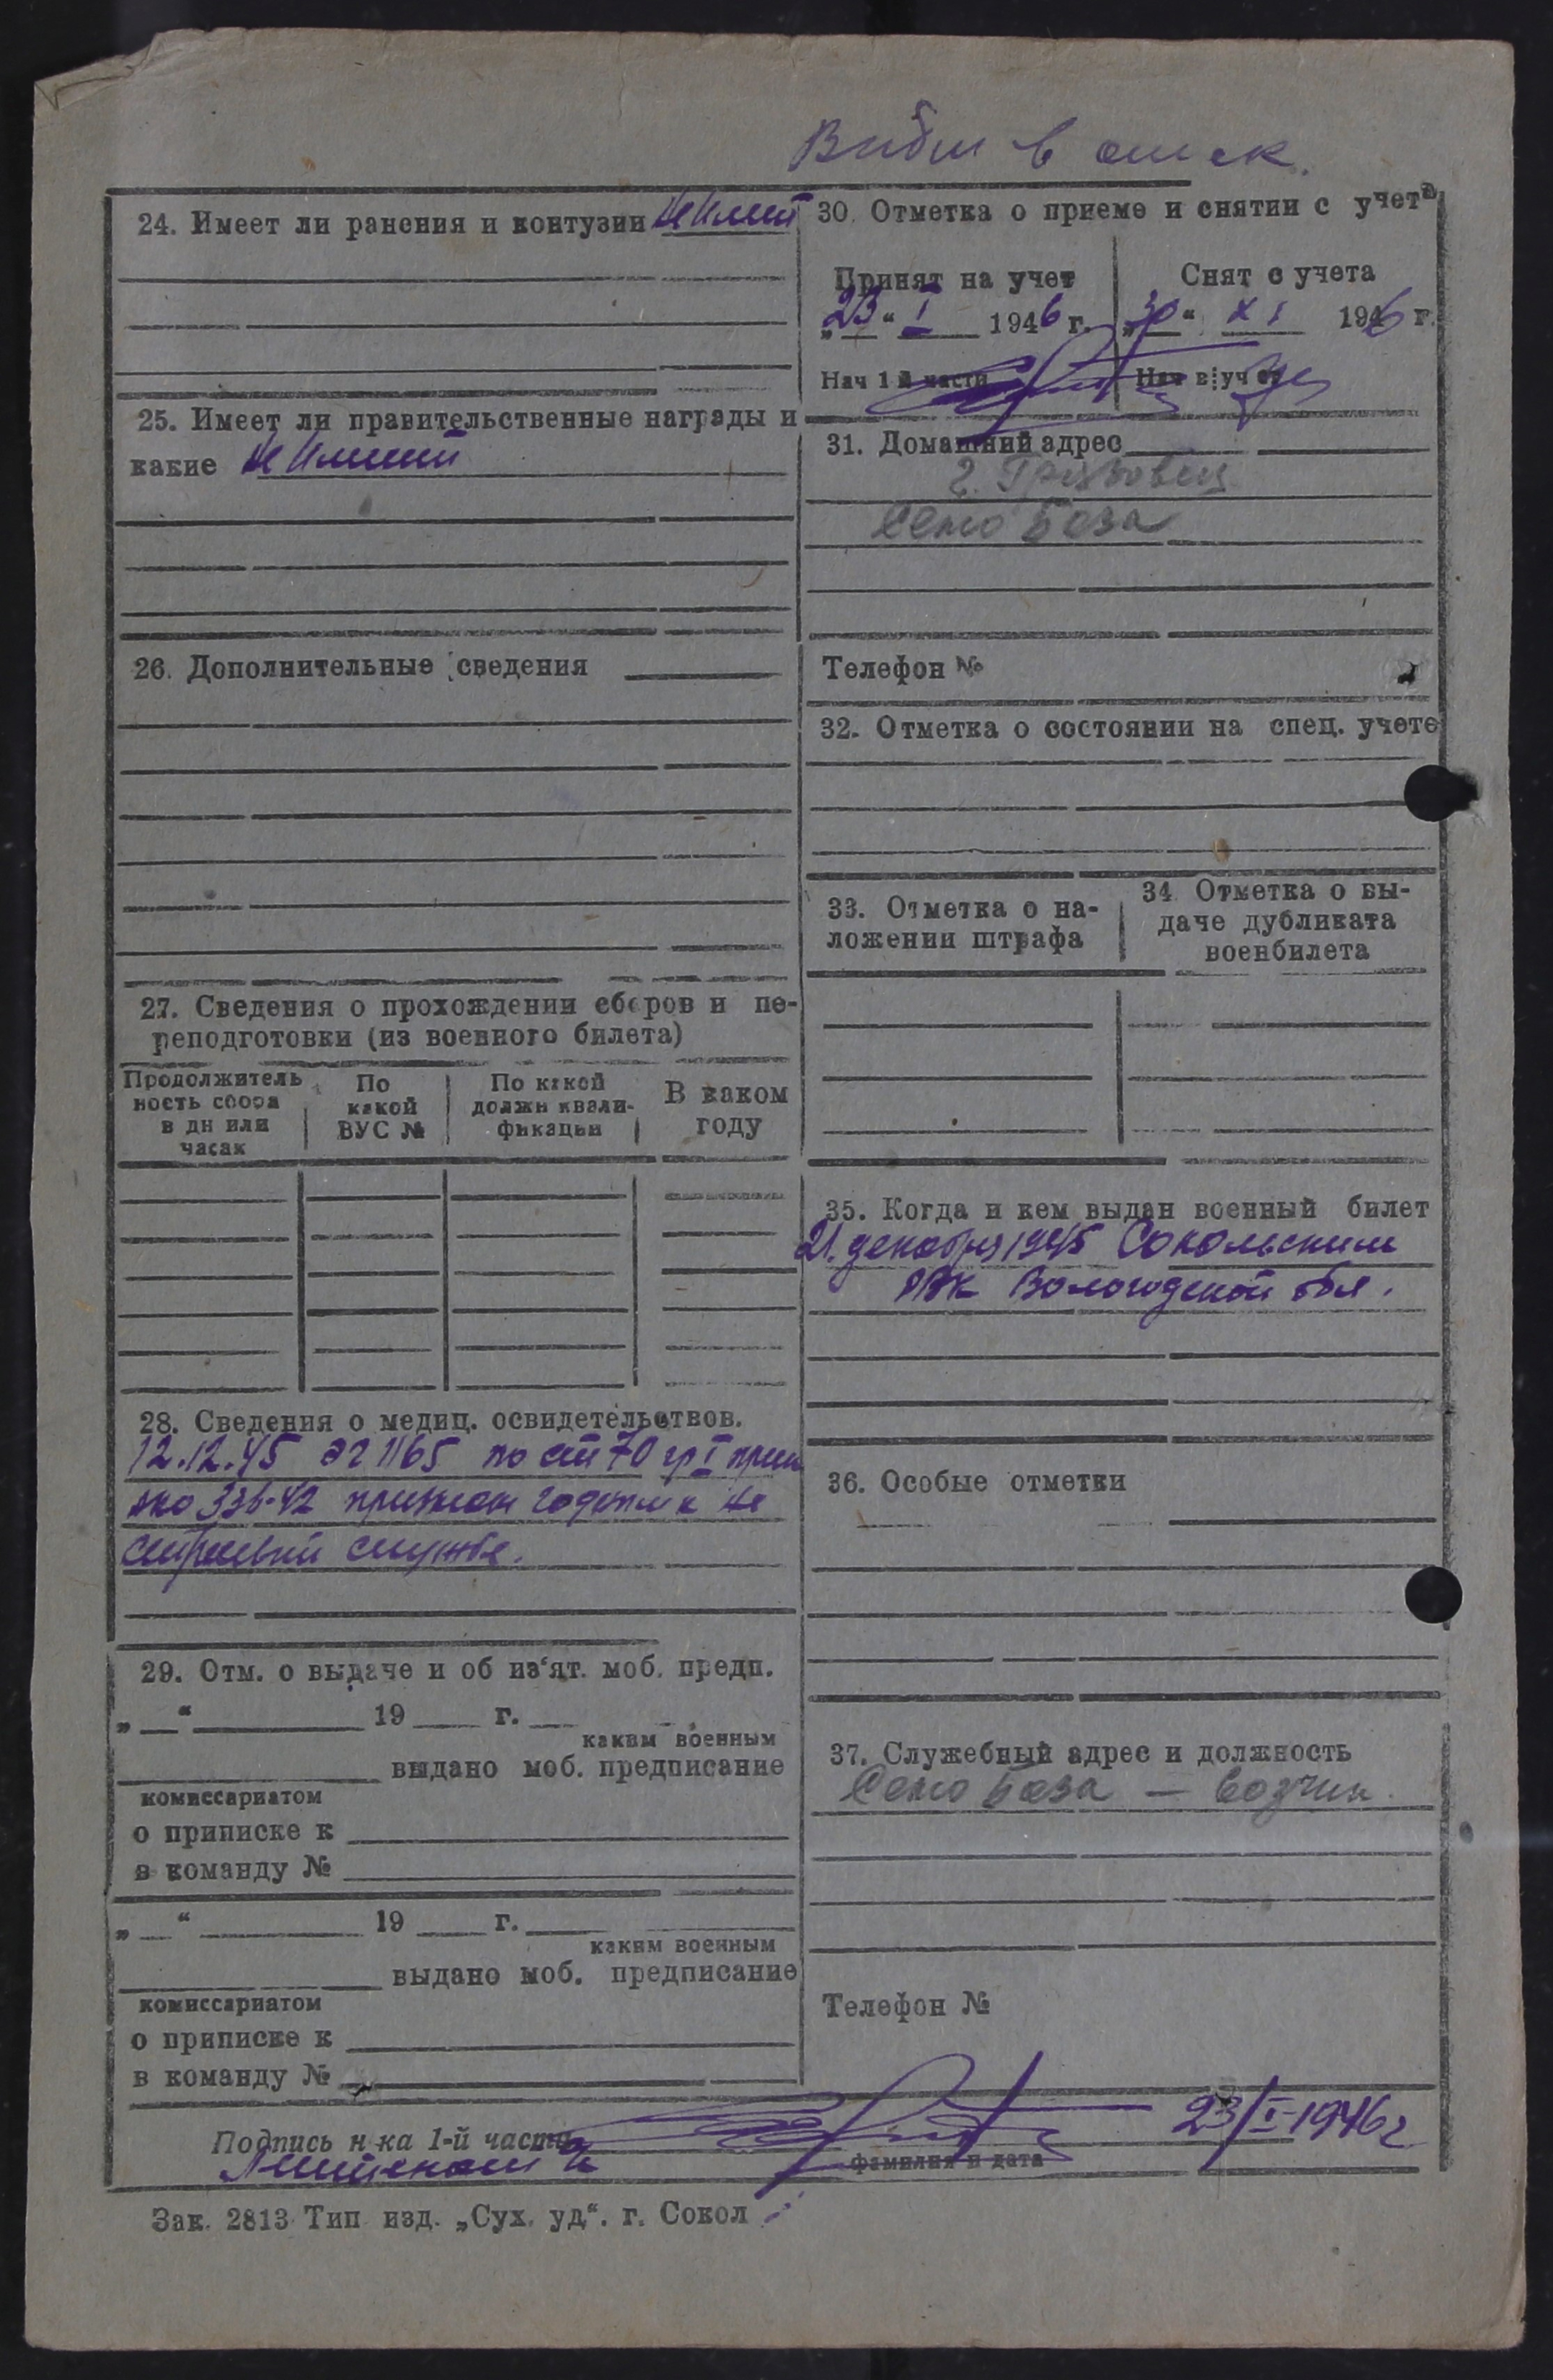 24. Имеет ли ранения и контузии не имеет
25. Имеет ли правительственные награды и
какие не имеет
26. Дополнительные сведения
27. Сведения о прохождении сборов и пе-
реподготовки (из военного билета)
Продолжитель
ность сбора
в дн или
часах
По
какой
ВУС №
По какой
должн квали-
фикации
В каком
году
28. Сведения о медиц. освидетельствов.
12.12.45 по ст 70 гр I прик
нко 336-42 признан годным к не
строевой службе.
29. Отм. о выдаче и об из‘ят. моб. предп.
„ “ 19 г.
каким военным
выдано моб. предписание
комиссариатом
о приписке к
в команду №
„ “ 19 г.
каким военным
выдано моб. предписание
комиссариатом
о приписке к
в команду №
в
30. Отметка о приеме и снятии с учета
Принят на учет
„23“ I 1946 г.
Нач 1 й части
Снят с учета
„30“ XI 1946 г.
Нач в уч
31. Домашний адрес
г. Грязовец
Сено База
Телефон №
32. Отметка о состоянии на спец. учете
33. Отметка о на-
ложении штрафа
34. Отметка о вы-
даче дубликата
военбилета
35. Когда и кем выдан военный билет
21. декабря 1945 Сокольским
РВК Вологодской обл.
36. Особые отметки
37. Служебный адрес и должность
Сено База — возчик.
Телефон №
Подпись н-ка 1-й части
23/I-1946 г
фамилия и дата
Зак. 2813 Тип изд. „Сух. уд“. г. Сокол